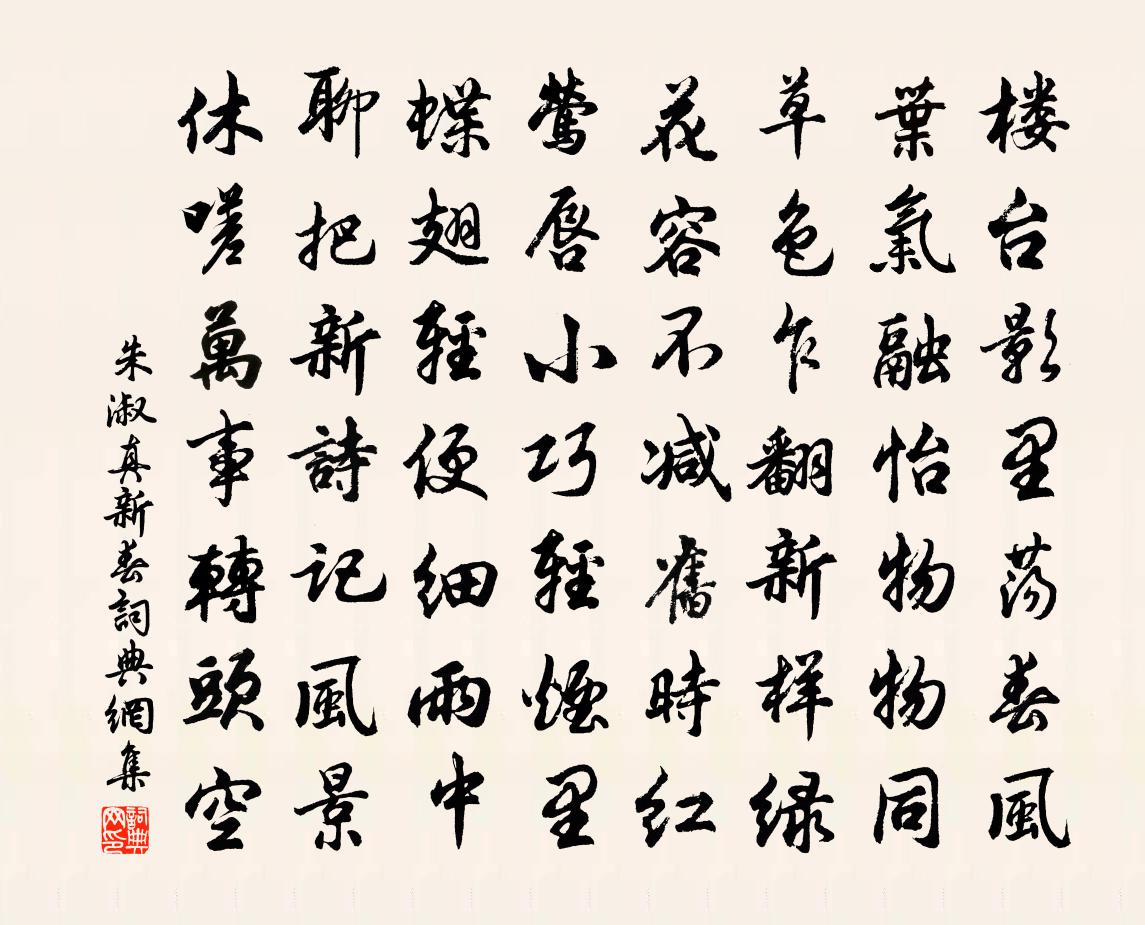 楼台影里荡春風
葉氣融怡物物同
草色乍翻新样绿
花容不减舊時红
鶯唇小巧輕煙里
蝶翅輕便细雨中
聊把新詩记風景
休嗟萬事轉頭空
朱淑真新春詞典網集
詞典网印